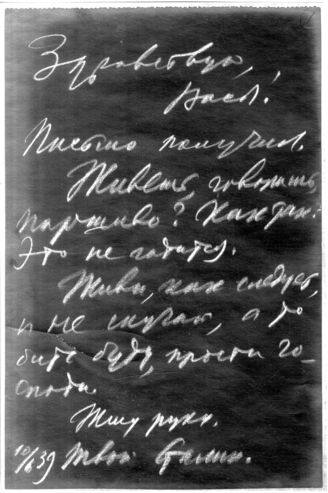 Здравствуй,
Вася!
Письмо получил.
Живешь, говоришь,
паршиво? Как так?
Это не годится.
Живи, как следует,
и не скучай, а то
бить буду, прости го-
споди.
Жму руку.
10/6 39 Твой Сталин.